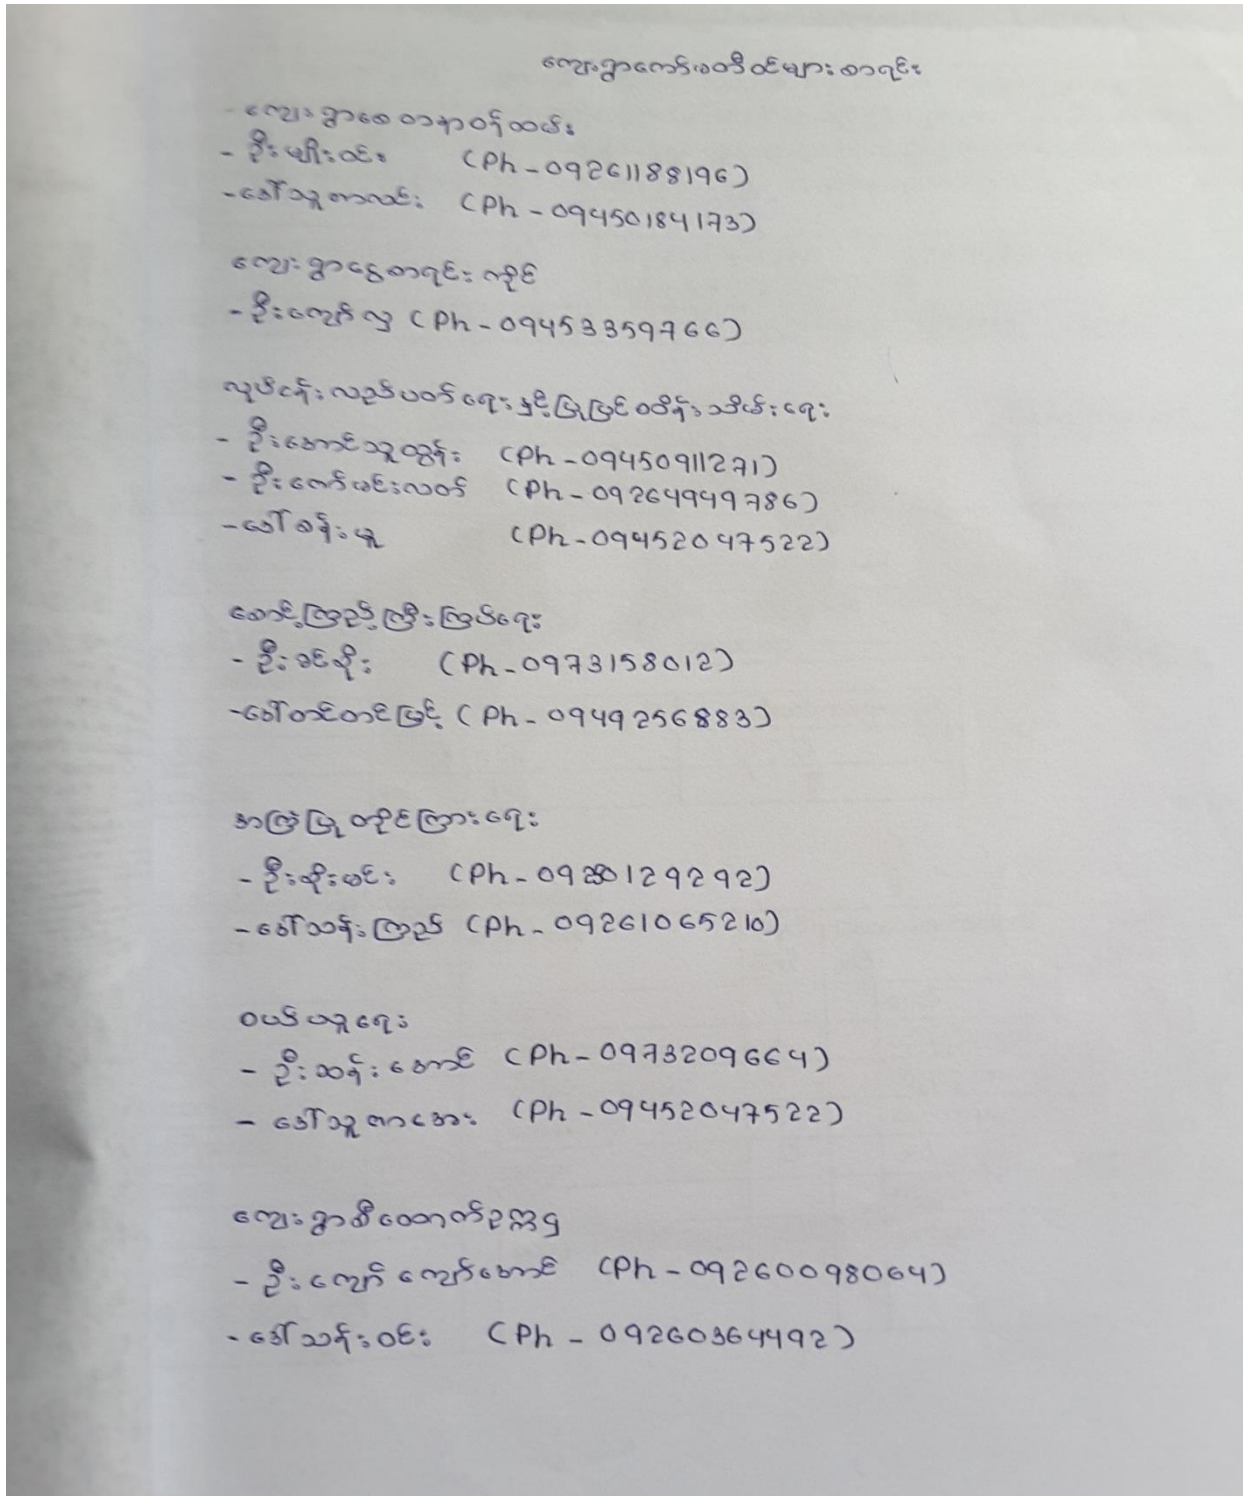 ကျေးရွာကော်မတီဝင်များစာရင်း
- ကျေးရွာစေတနာ့ဝန်ထမ်း
- ဦးမျိုးဝင်း (Ph-09261188196)
- ဒေါ်သူဇာလင်း (Ph - 09450184173)
ကျေးရွာငွေစာရင်းကိုင်
- ဦးကျော်လှ (Ph-09453359766)
လုပ်ငန်းလည်ပတ်ရေးနှင့်ပြုပြင်ထိန်းသိမ်းရေး
- ဦးအောင်သူထွန်း (Ph-09450911271)
- ဦးဇော်မင်းလတ် (Ph-09264949786)
- ဒေါ်စန်းယု (Ph-09452047522)
စောင့်ကြည့်ကြီးကြပ်ရေး
- ဦးခင်စိုး (Ph-0973158012)
- ဒေါ်တင်တင်မြင့် (Ph-0949256883)
အကြံပြုတိုင်ကြားရေး
- ဦးစိုးမင်း (Ph-09280129292)
- ဒေါ်သန်းကြည် (Ph-09261065210)
ဝယ်ယူရေး
- ဦးဆန်းအောင် (Ph-0973209664)
- ဒေါ်သူဇာအေး (Ph-09452047522)
ကျေးရွာမီထောက်ဥက္ကဋ္ဌ
- ဦးကျော်ကျော်အောင် (Ph-09260098064)
- ဒေါ်သန်းဝင်း (Ph - 09260364492)